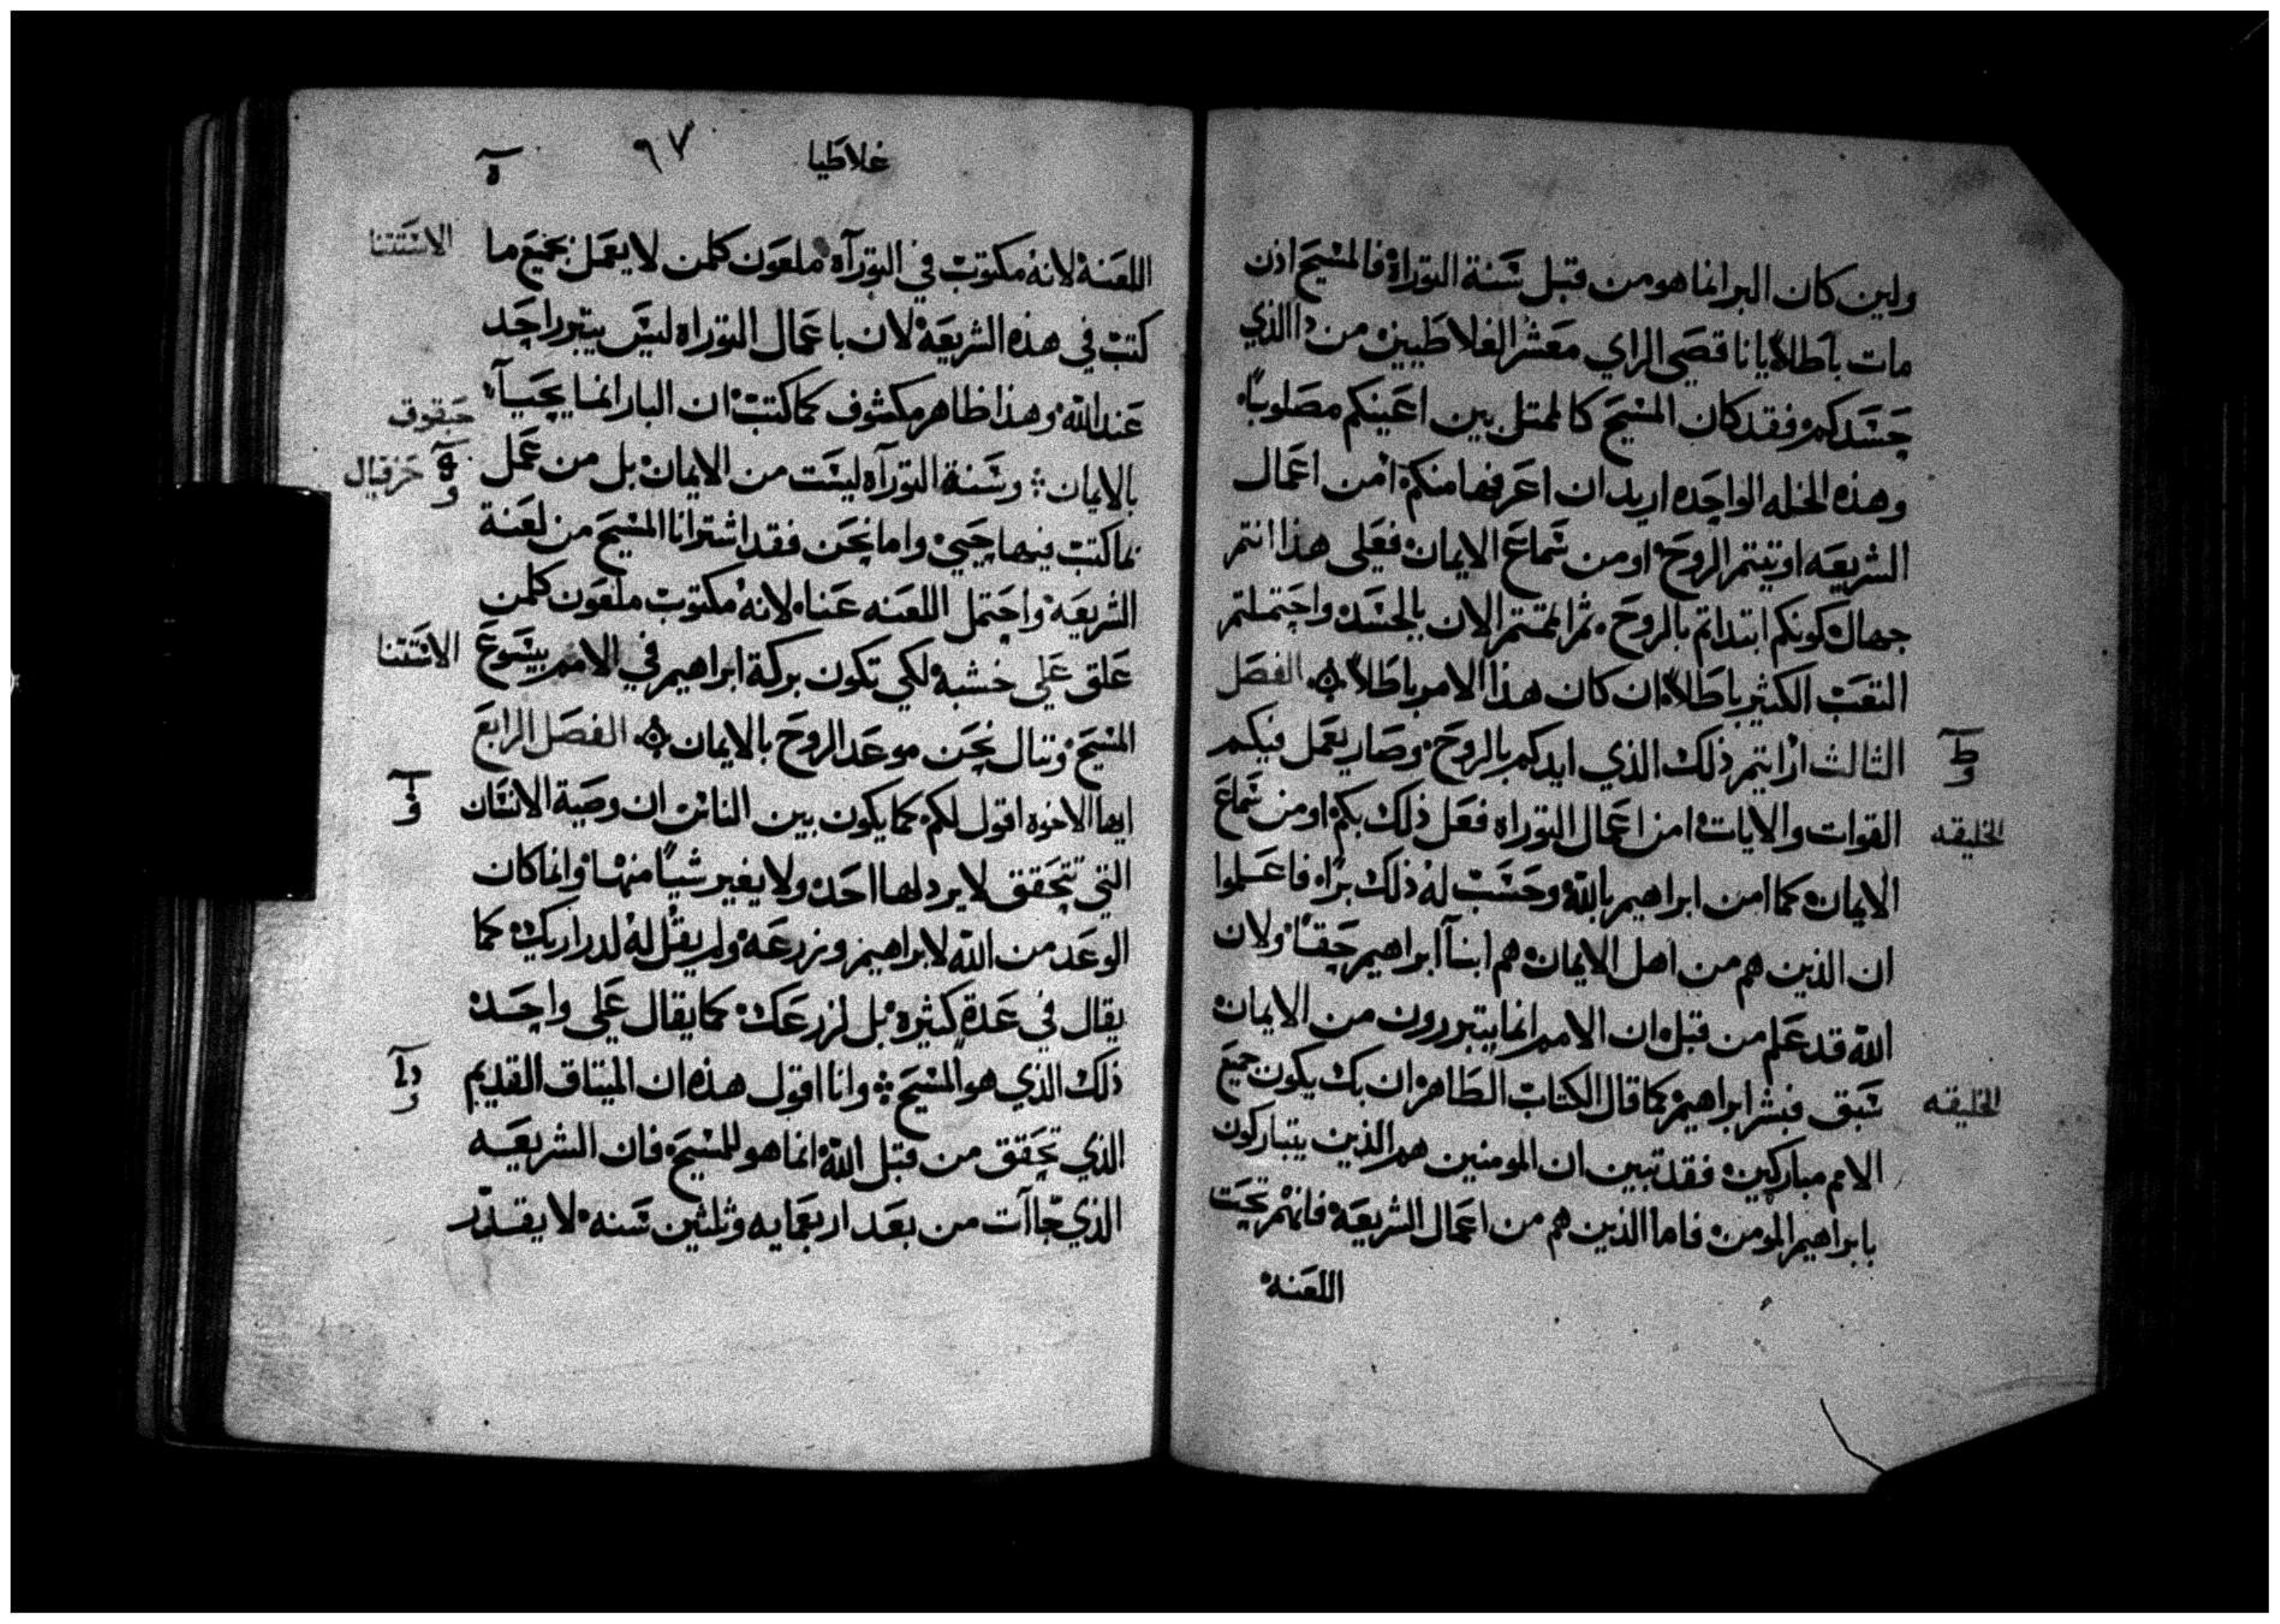 ولين كان البر انما هو من قبل سنة التوراة فالمسيح اذن
مات باطلاً يا ناقصي الراي معشر الغلاطيين من ذا الذي
حسدكم فقد كان المسيح كالممثل بين اعينكم مصلوباً
وهذه الخله الواحده اريد ان اعرفها منكم امن اعمال
الشريعه اوتيتم الروح او من سماع الايمان فعلى هذا انتم
جهال كونكم ابتداتم بالروح ثم اتممتم الان بالجسد واحتملتم
التعب الكثير باطلاً ان كان هذا الامر باطلاً الفصل
الثالث ارايتم ذلك الذي ايدكم بالروح وصار يعمل فيكم
القوات والايات امن اعمال التوراه فعل ذلك بكم او من سماع
الخليقه
الايمان كما امن ابراهيم بالله وحسب له ذلك براً فاعلموا
ان الذين هم من اهل الايمان هم ابنآ ابراهيم حقاً ولان
الله قد علم من قبل ان الامم انما يتبررون من الايمان
سبق فبشر ابراهيم كما قال الكتاب الطاهر ان بك يكون جميع
الخليقه
الامم مباركين فقد تبين ان المومنين هم الذين يتباركون
بابراهيم المومن فاما الذين هم من اعمال الشريعة فانهم تحت
اللعنه
غلاطيا
٩٧
ه
اللعنة لانه مكتوب في التورآه ملعون كلمن لا يعمل بجميع ما
الاستتنا
كتب في هذه الشريعة لان باعمال التوراه ليس يتبرر احد
عند الله وهذا ظاهر مكشوف كما كتب ان البار انما يحيآ
حبقوق
بالايمان وسنة التورآه ليست من الايمان بل من عمل
حزقيال
بما كتب فيها حيي واما نحن فقد اشترانا المسيح من لعنة
الشريعة واحتمل اللعنه عنا لانه مكتوب ملعون كلمن
علق على خشبة لكي تكون بركة ابراهيم في الامم بيسوع
الاستتنا
المسيح وننال نحن موعد الروح بالايمان الفصل الرابع
ايها الاخوه اقول لكم كما يكون بين الناس ان وصية الانسان
التي تتحقق لا يردلها احد ولا يغير شياً منها وانما كان
الوعد من الله لابراهيم وزرعه ولم يقل له لدراريك كما
يقال في عدة كثيره بل لزرعك كما يقال على واحد
ذلك الذي هو المسيح وانا اقول هذه ان الميتاق القديم
الذي تحقق من قبل الله انما هو للمسيح فان الشريعه
الذي جاآت من بعد اربعمايه وثلثين سنه لا يقدر